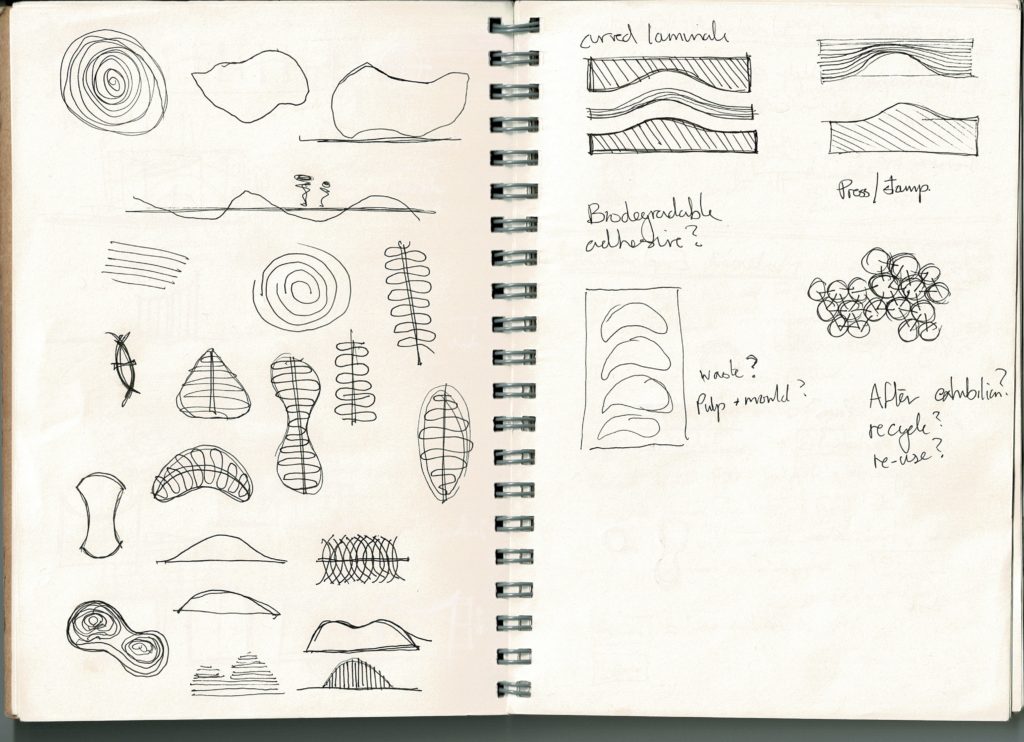 curved laminate
Press/stamp
Biodegradable
adhesive?
waste?
Pulp + mould?
After exhibition?
recycle?
re-use?